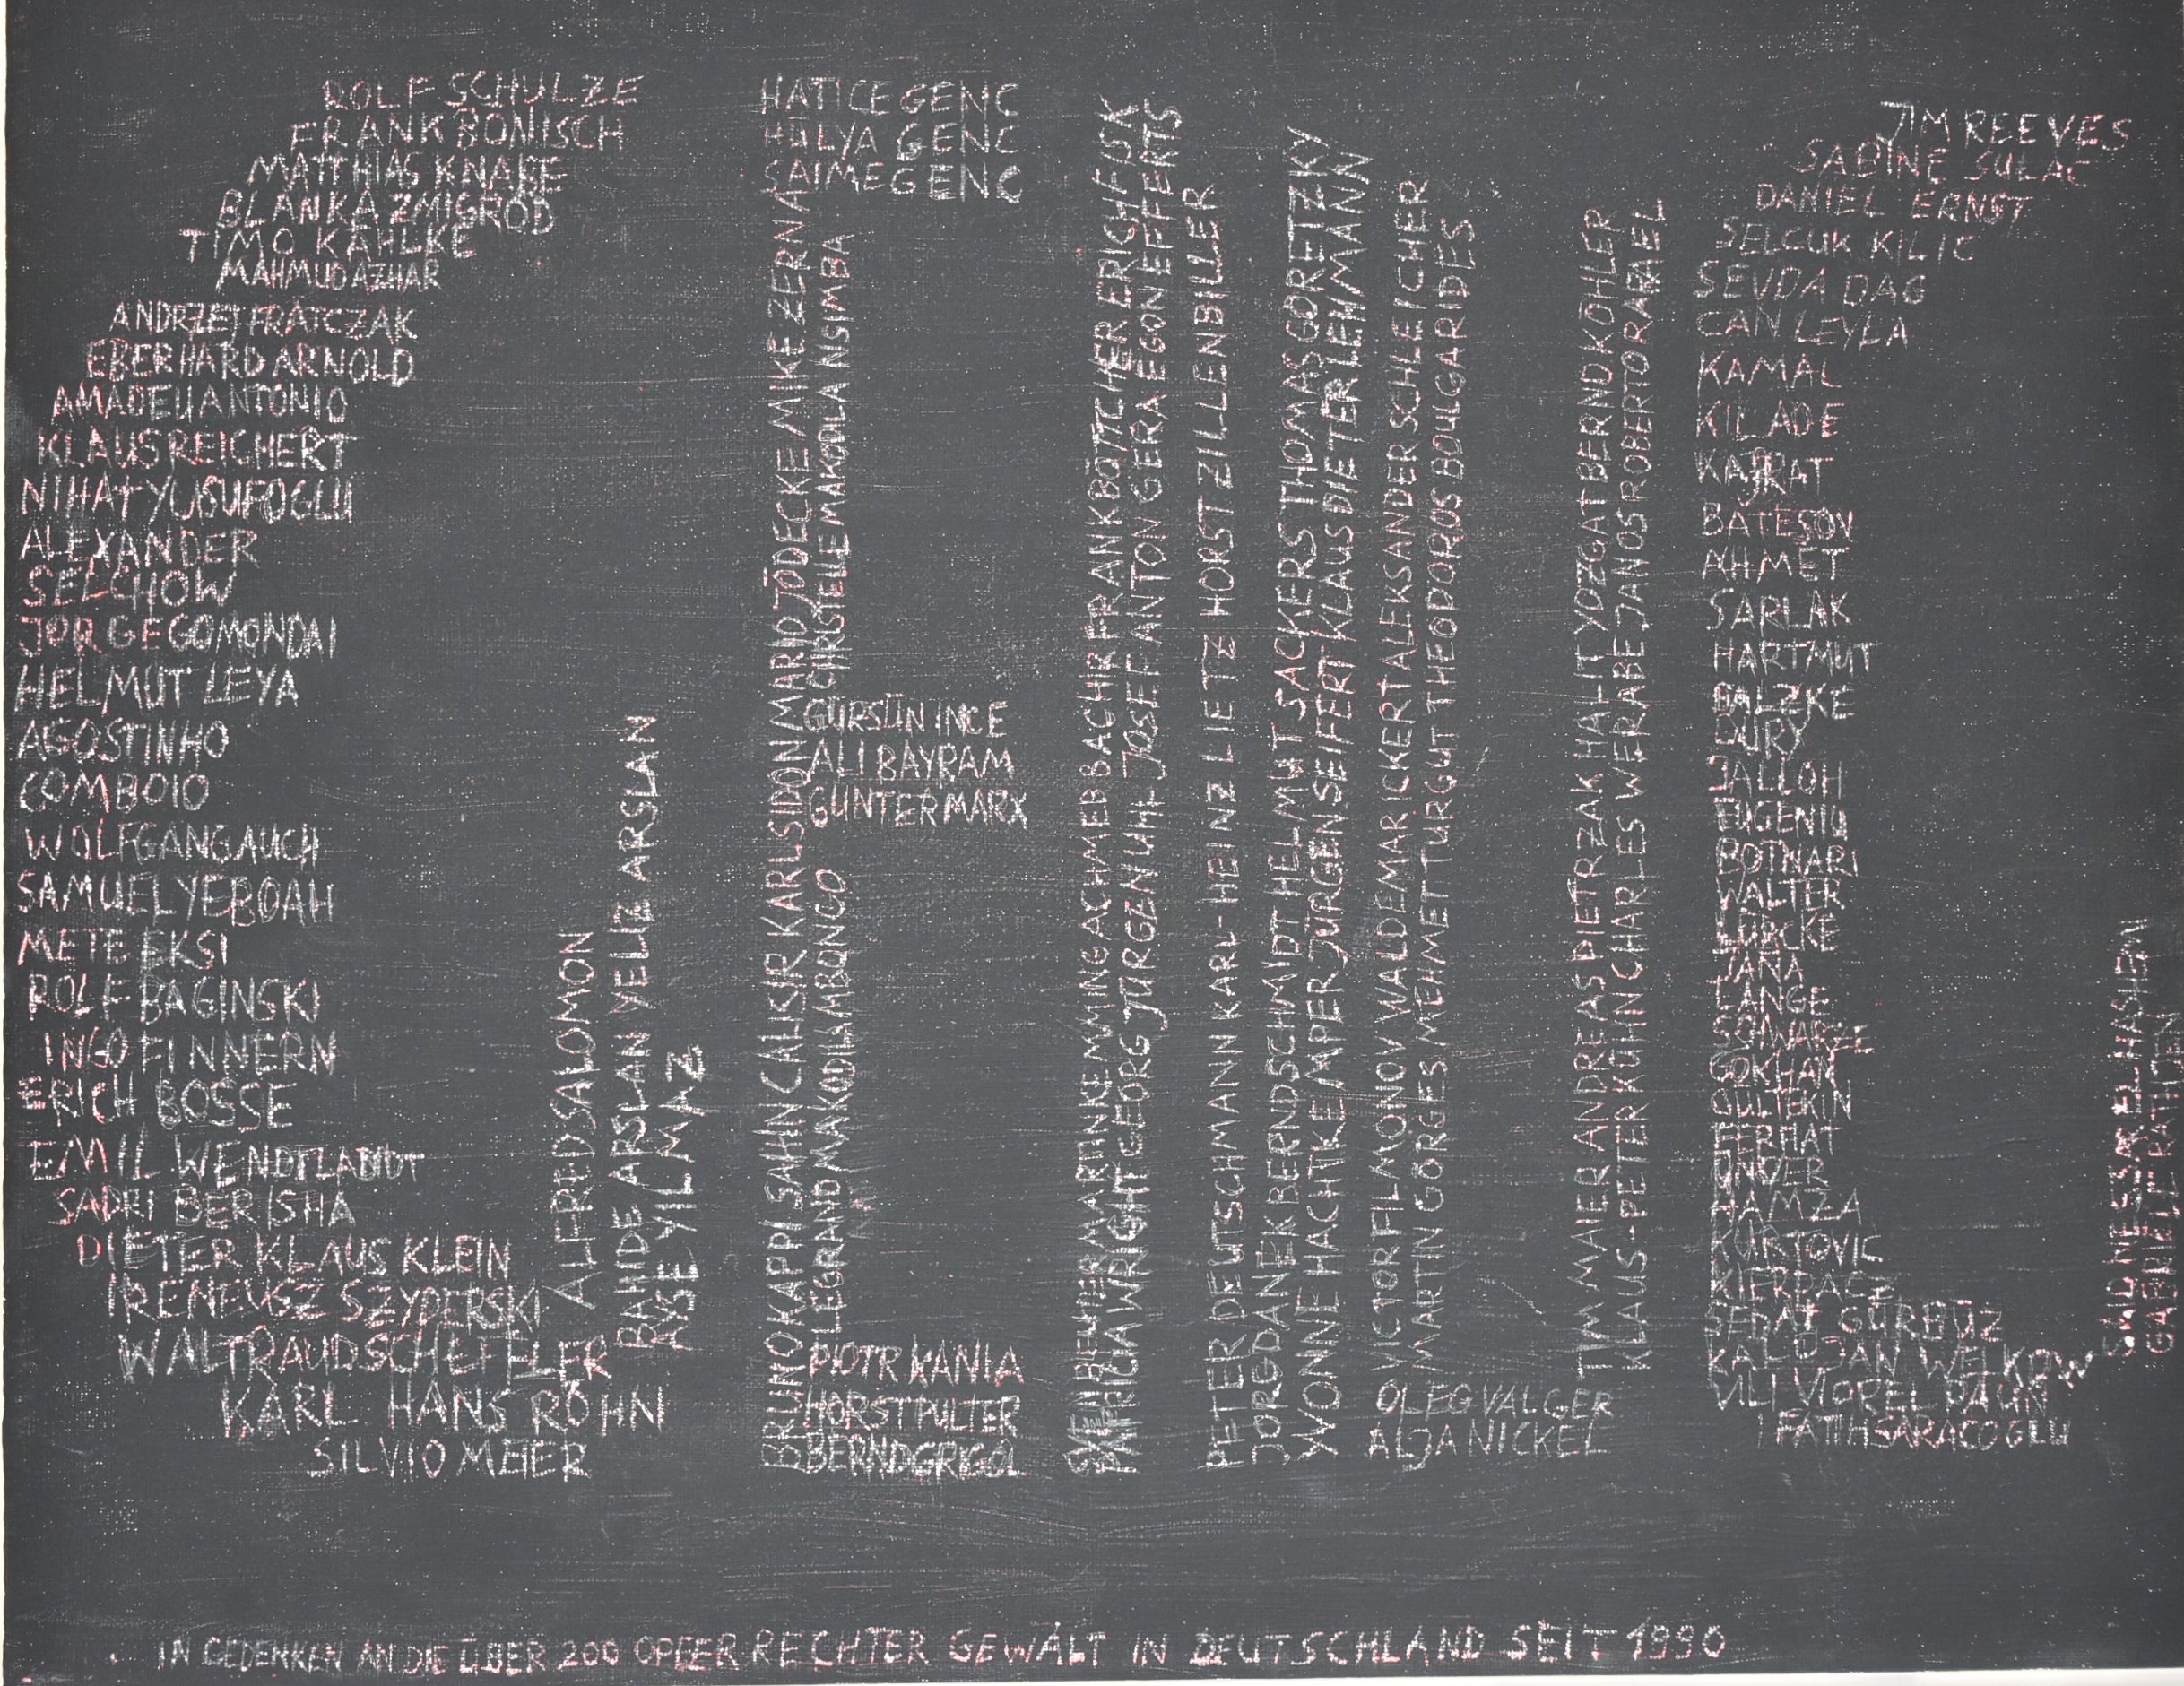 ROLF SCHULZE
FRANK BÖNISCH
MATTHIAS KNABE
BLANKA ZMIGROD
TIMO KÄHLKE
MAHMUD AZHAR
ANDRZEJ FRATCZAK
EBERHARD ARNOLD
AMADEU ANTONIO
KLAUS REICHERT
NIHAT YUSUFOGLU
ALEXANDER
SELCHOW
JORGE GOMONDAI
HELMUT LEYA
AGOSTINHO
COMBOIO
WOLFGANG AUCH
SAMUEL YEBOAH
METE EKSI
ROLF BAGINSKI
INGO FINNERN
ERICH BOSSE
EMIL WENDTLANDT
SADRI BERISHA
DIETER KLAUS KLEIN
IRENEUSZ SZYDERSKI
WALTRAUD SCHEFFLER
KARL HANS ROHN
SILVIO MEIER
ALFRED SALOMON
BAHIDE ARSLAN YELIZ ARSLAN
AYSE YILMAZ
HATICE GENC
HÜLYA GENC
SAIME GENC
BRUNO KAPPI SAHIN CALISIR KARL SIDON MARIO JÖDECKE MIKE ZERNA
LEGRAND MAKODILA MBONGO
CHRISTELLE MAKODILA NSIMBA
GÜRSÜN INCE
ALI BAYRAM
GUNTER MARX
PIOTR KANIA
HORST PULTER
BERND GRIGOL
SVEN BEUTER MARTIN KEMMING ACHMED BACHIR FRANK BÖTTCHER ERICH FISK
PATRICIA WRIGHT GEORG JÜRGEN UHL JOSEF ANTON GERA EGON EFFERTS
PETER DEUTSCHMANN KARL-HEINZ LIETZ HORST ZILLENBILLER
JORG DANEK BERND SCHMIDT HELMUT SACKERS THOMAS GORETZKY
YVONNE HACHTKEMPER JÜRGEN SEIFERT KLAUS DIETER LEHMANN
VICTOR FILMONOV WALDEMAR ICKERT ALEKSANDER SCHLEICHER
MARTIN GÖRGES MEHMET TURGUT THEODOROS BOULGARIDES
OLEG VALGER
ALJA NICKEL
TIM MAIER ANDREAS PIETRZAK HALIT YOZGAT BERND KÖHLER
KLAUS-PETER KÜHN CHARLES WERABE JANOS ROBERTO RAFAEL
JIM REEVES
SABINE SULAC
DANIEL ERNST
SELCUK KILIC
SEVDA DAG
CAN LEYLA
KAMAL
KILADE
KAJRAT
BATESOV
AHMET
SARLAK
HARTMUT
BALZKE
OURY
JALLOH
EUGENIU
BOTNARI
WALTER
LÜBCKE
JANA
LANGE
GÖKHAN
GÜLTEKIN
FERHAT
UNVER
HAMZA
KURTOVIC
KIERPACZ
SEDAT GÜRBÜZ
KALOJAN WELKOW
VILI VIOREL PAUN
FATIH SARACOGLU
SAID NESSAR EL HASHEMI
GABRIELE RATHJEN
IN GEDENKEN AN DIE ÜBER 200 OPFER RECHTER GEWALT IN DEUTSCHLAND SEIT 1990